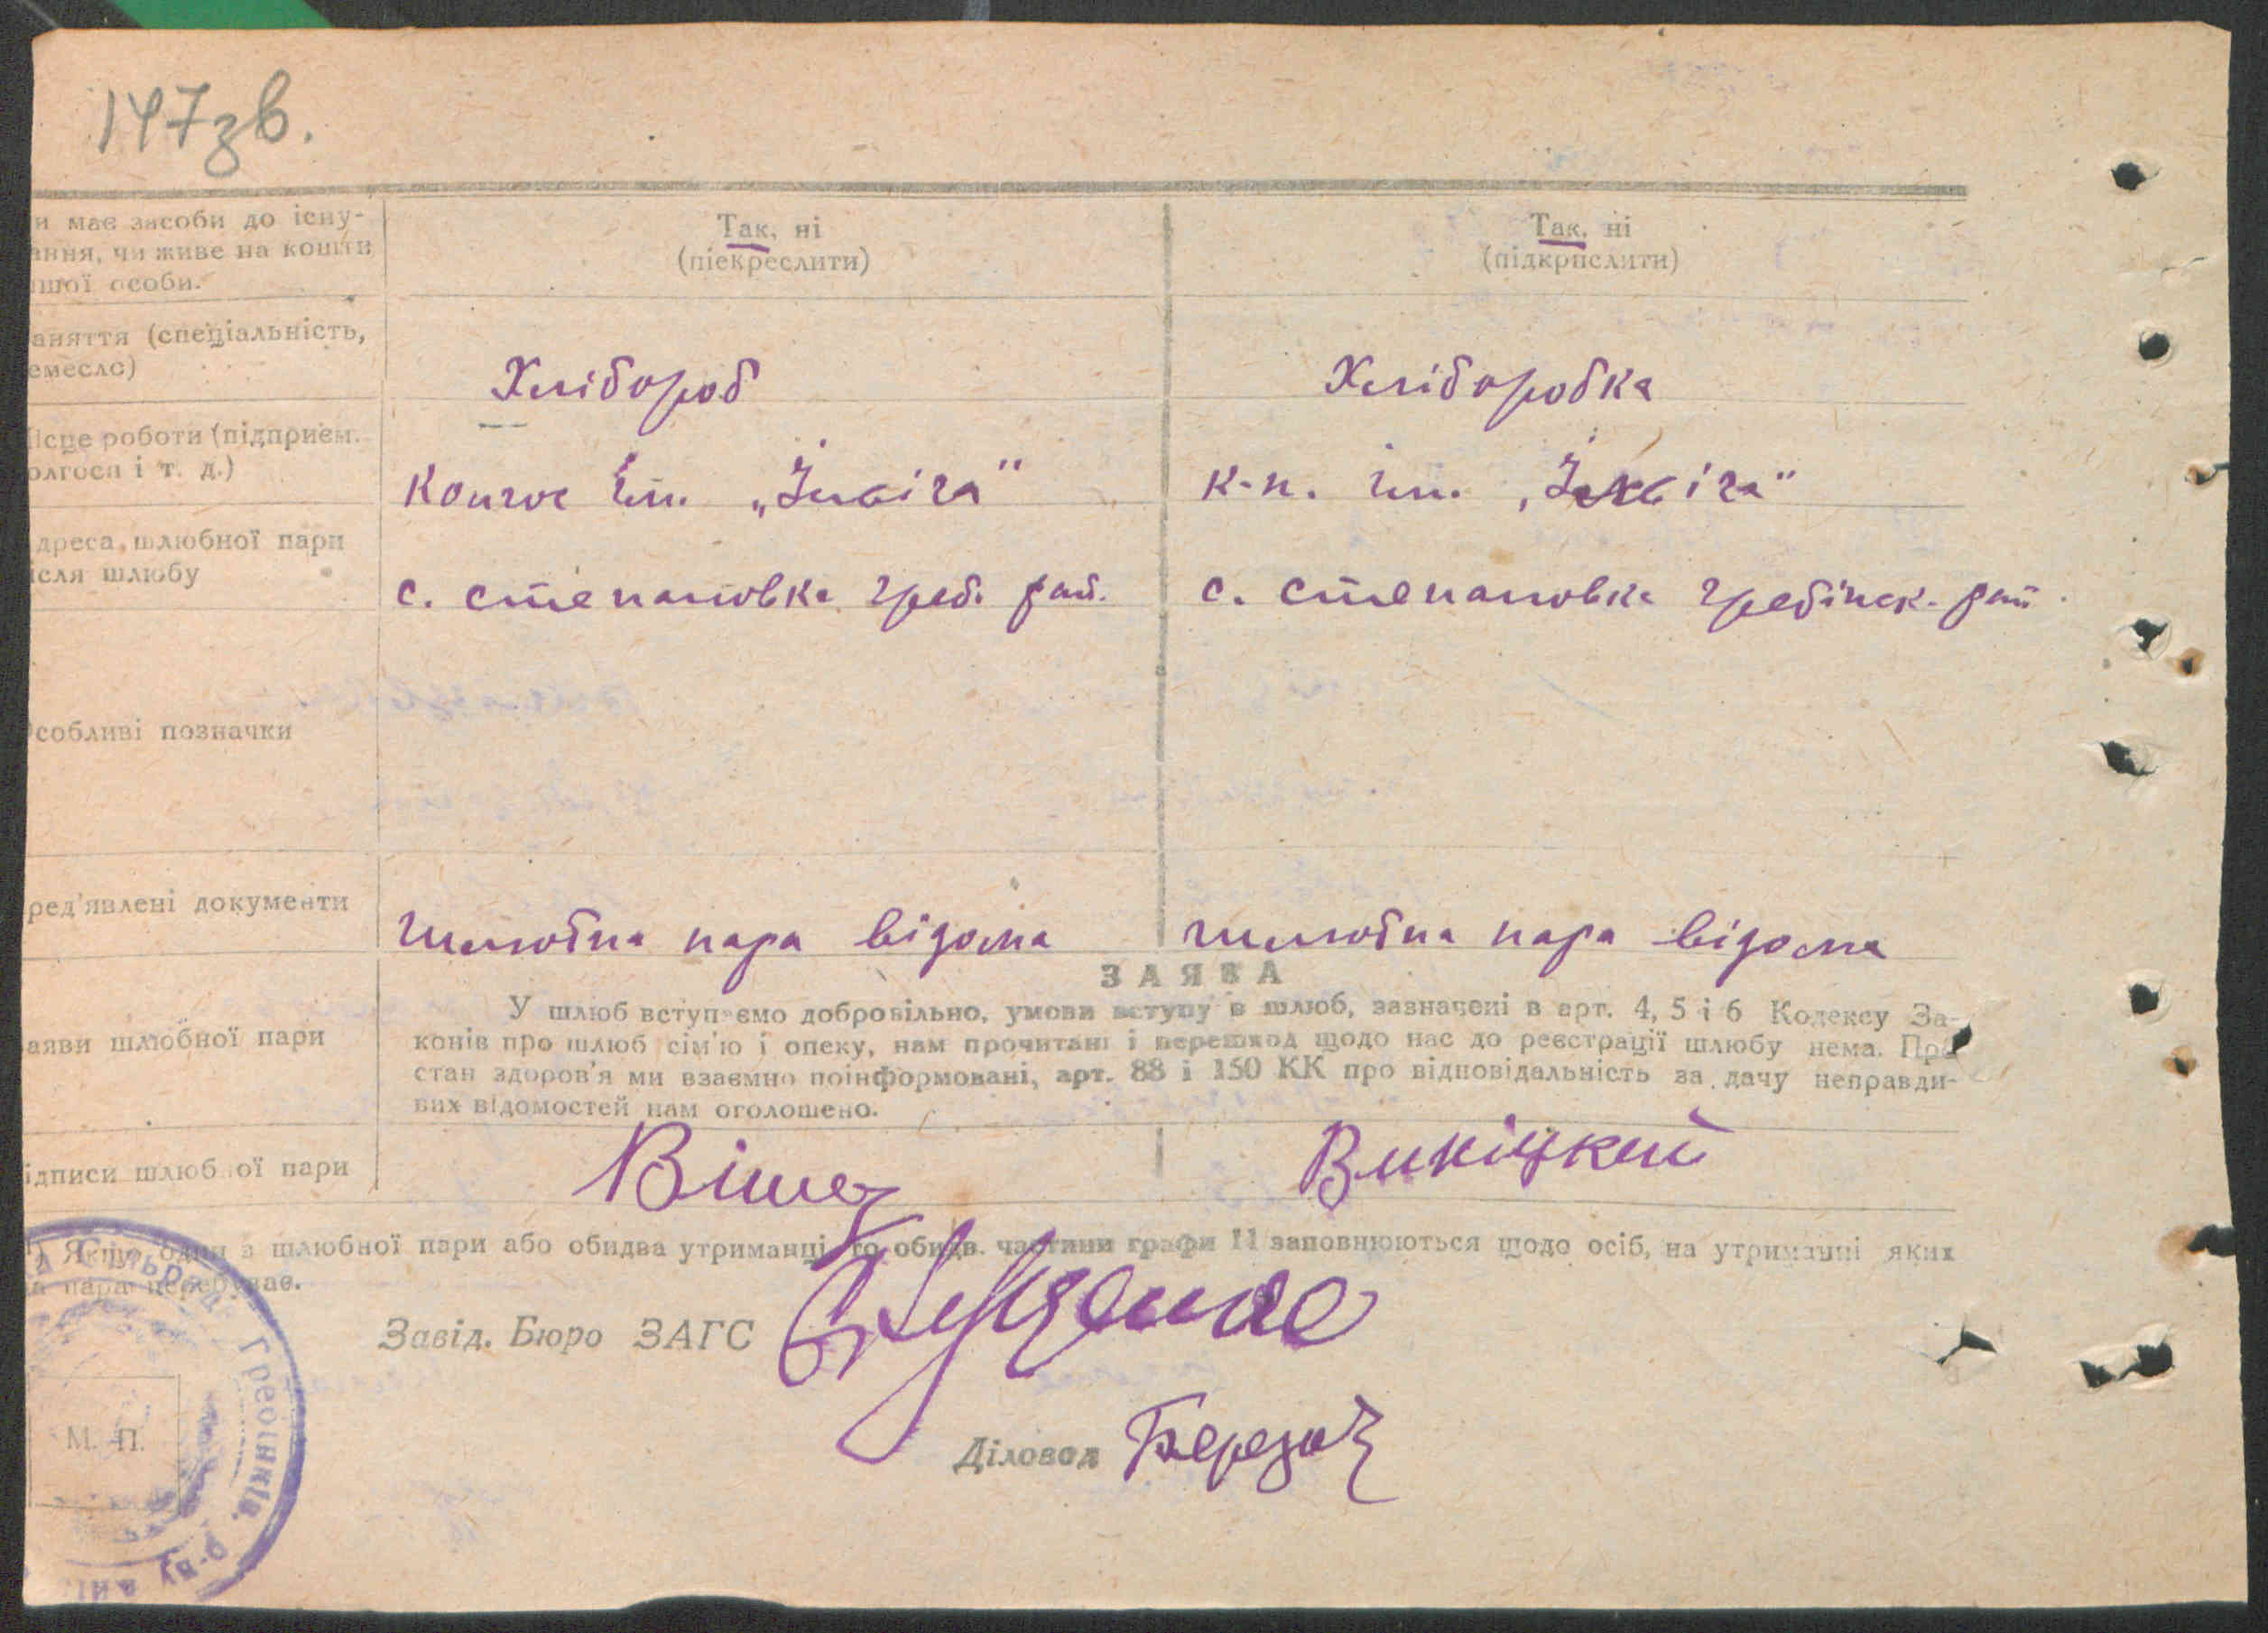 147зв.
и має засоби до існу-
ання, чи живе на кошти
ншої особи.
Так, ні
(піекреслити)
Так, ні
(підкрпслити)
аняття (спеціальність,
емесло)
Хлібороб
Хліборобка
ісце роботи (підприєм.
олгосп і т. д.)
Колгос ім.
к-п. ім.
дреса шлюбної пари
ісля шлюбу
с. Степановка греб. рай.
с. Степановка гребінск. рай.
собливі позначки
ред'явлені документи
шлюбна пара відома
шлюбна пара відома
ЗАЯВА
аяви шлюбної пари
У шлюб вступаємо добровільно, умови вступу в шлюб, зазначені в арт. 4, 5 і 6 Кодексу За-
конів про шлюб сім'ю і опеку, нам прочитані і перешкод щодо нас до реєстрації шлюбу нема. Про
стан здоров'я ми взаємно поінформовані, арт. 88 і 150 КК про відповідальність за дачу неправди-
вих відомостей нам оголошено.
ідписи шлюб ої пари
Вініцкий
Якщо один з шлюбної пари або обидва утриманці, то обидв. частини графи 11 заповнюються щодо осіб, на утриманні яких
а пара перебуває.
Завід. Бюро ЗАГС
Діловод
М. П.
Сільрада Гребінків. р-ну